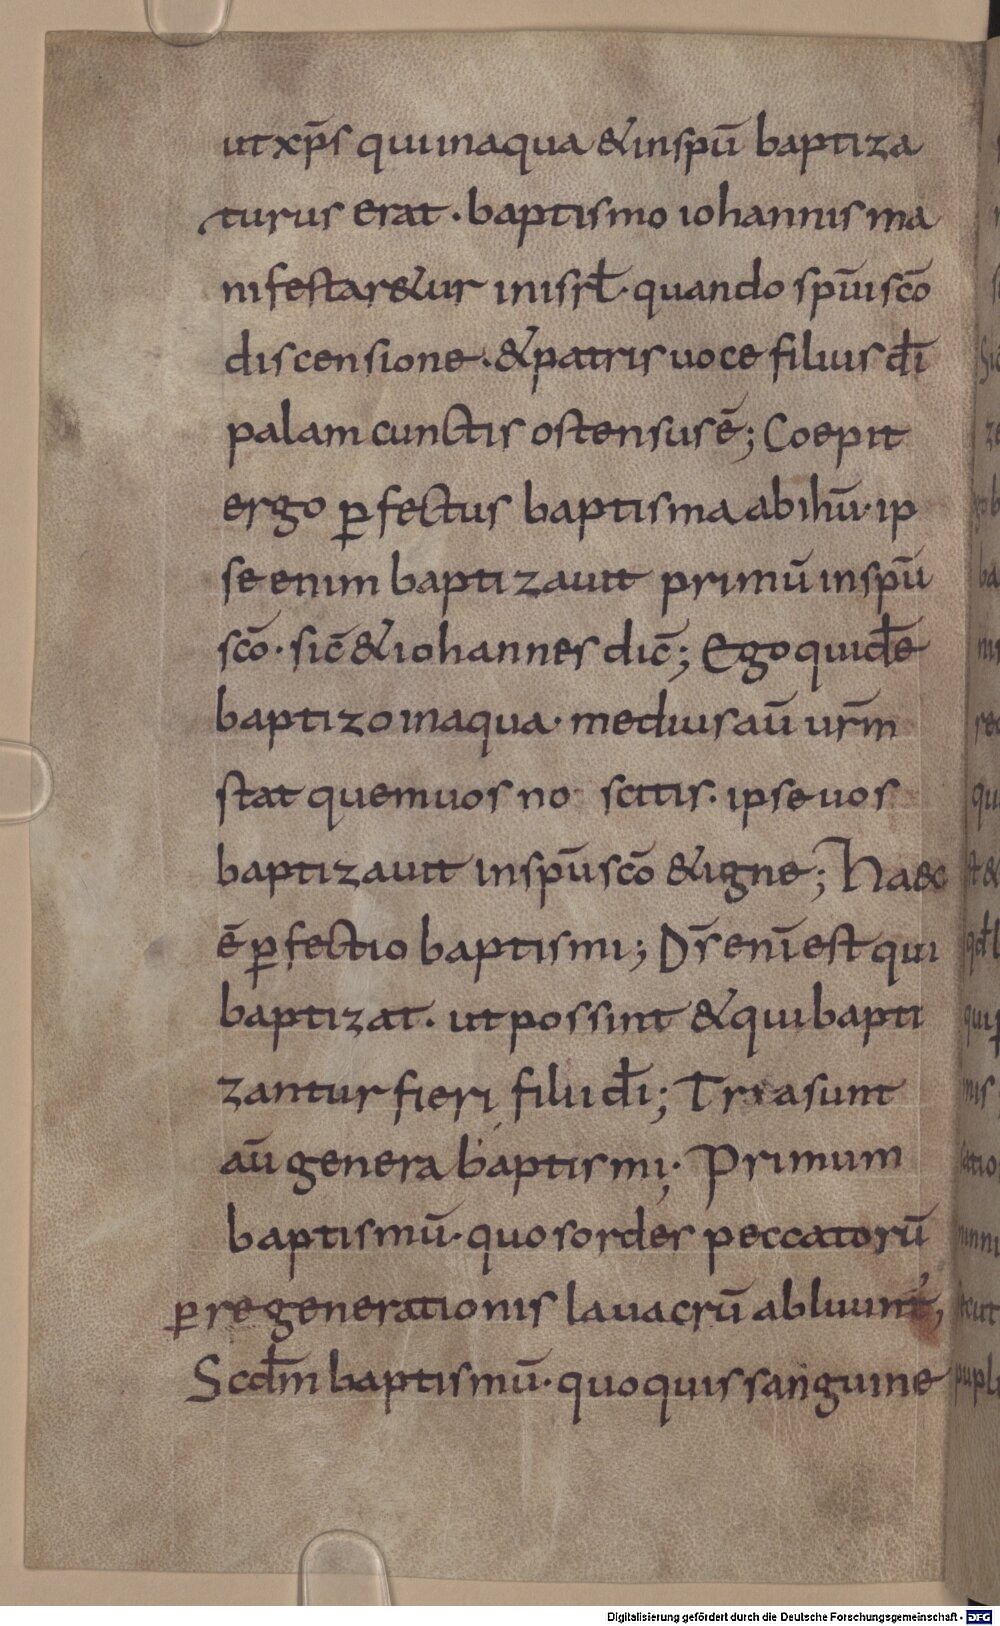 ut xp̄s qui in aqua & in spū baptiza
turus erat · baptismo iohannis ma
nifestar&ur in isrł · quando sp̄ui sc̄o
discensione · & patris uoce filius dī
palam cunctis ostensus ē; Coepit
ergo ꝑfectus baptisma ab ihū · ip
se enim baptizauit primū in spū
sc̄o · sic̄ & iohannes dic̄; Ego quidē
baptizo in aqua · medius aū ur̄m
stat quem uos no scitis · ipse uos
baptizauit in sp̄u sc̄o & igne; Haec
ē ꝑfectio baptismi; Dn̄s enī est qui
baptizat · ut possint & qui bapti
zantur fieri filii dī; Tria sunt
aū genera baptismi; Primum
baptismū · quo sordes peccatorū
ꝑ regenerationis lauacrū abluunt;
Scdm̄ baptismū · quo quis sanguine
Digitalisierung gefördert durch die Deutsche Forschungsgemeinschaft - DFG